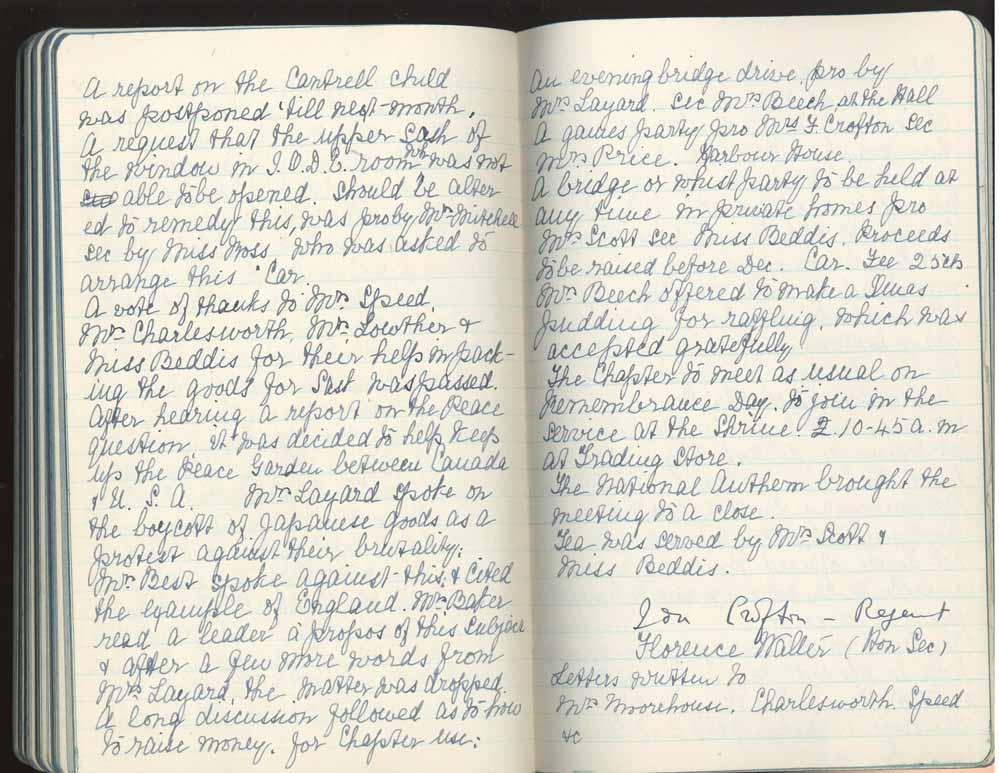 A report on the Cantrell child
was postponed 'till next month.
A request that the upper sash of
the window in I.O.D.E. room wh. was not
able to be opened. Should be alter
ed to remedy this, was pro by Mrs Mitchell
sec by Miss Moss who was asked to
arrange this. Car.
A vote of thanks to Mrs Speed,
Mrs Charlesworth, Mrs Lowther &
Miss Beddis for their help in pack-
ing the goods for Sask was passed.
After hearing a report on the Peace
question it was decided to help keep
up the Peace Garden between Canada
& U. S. A. Mrs Layard spoke on
the boycott of Japanese goods as a
protest against their brutality:
Mrs Best spoke against this, & cited
the example of England. Mrs Baker
read a leader à propos of this subject
& after a few more words from
Mrs Layard, the matter was dropped.
A long discussion followed as to how
to raise money. for Chapter use:
An evening bridge drive, pro by
Mrs Layard. sec Mrs Beech at the Hall
A games party pro Mrs F. Crofton sec
Mrs Price. Harbour House.
A bridge or whist party to be held at
any time in private homes pro
Mrs Scott sec Miss Beddis. Proceeds
to be raised before Dec. Car. Fee 25cts
Mrs Beech offered to make a Xmas
pudding for raffling, which was
accepted gratefully
The Chapter to meet as usual on
Remembrance Day. to join in the
service at the Shrine. 10-45 a.m
at Trading Store.
The National Anthem brought the
meeting to a close.
Tea was served by Mrs Scott &
Miss Beddis.
Crofton – Regent
Florence Waller (Hon Sec)
Letters written to
Mrs Moorehouse. Charlesworth. Speed
&c